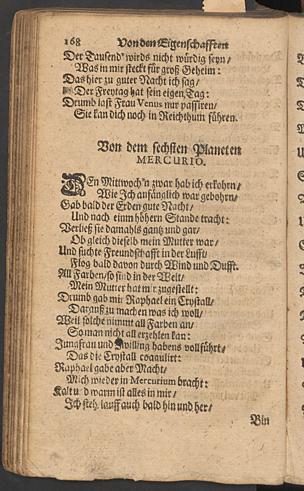 168 Von den Eigenschafften
Der Tausend' wirds nicht würdig seyn/
Was in mir steckt für groß Geheim:
Das hier zu guter Nacht ich sag/
Der Freytag hat sein eigen Tag:
Drumb last Frau Venus nur passiren/
Sie kan dich noch in Reichthum führen.
Von dem sechsten Planeten
MERCURIO.
DEn Mittwoch'n zwar hab ich erkohrn/
Wie Ich anfänglich war gebohrn/
Gab bald der Erden gute Nacht/
Und nach einm höhern Stande tracht:
Verließ sie damahls gantz und gar/
Ob gleich dieselb mein Mutter war/
Und suchte Freundschafft in der Lufft/
Flog bald davon durch Wind und Dufft.
All Farben/so sind in der Welt/
Mein Mutter hat mir zugestellt:
Drumb gab mir Raphael ein Crystall/
Darauß zu machen was ich woll/
Weil solche nimmt all Farben an/
So man nicht all erzehlen kan:
Jungfrau und Zwilling habens vollführt/
Das die Crystall coagulirt:
Raphael gabe aber Macht/
Mich wieder in Mercurium bracht:
Kalt und warm ist alles in mir/
Ich steh/lauff auch bald hin und her/
Bin